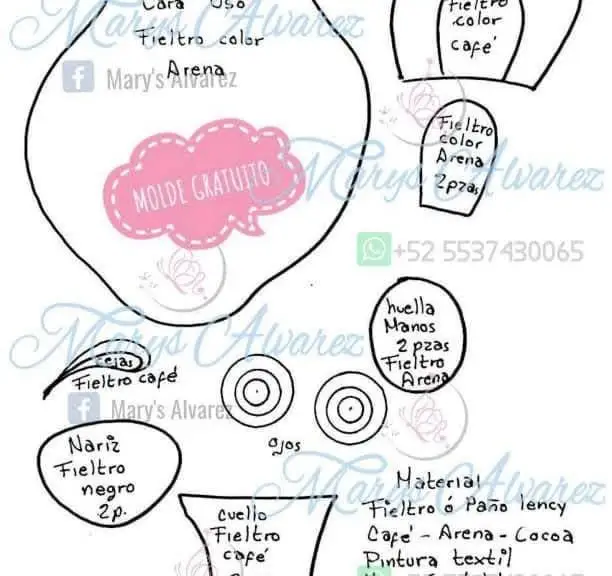 Cara Oso
Fieltro color
Arena
Mary's Alvarez
Fieltro
color
café
Fieltro
color
Arena
2pzas
MOLDE GRATUITO
Marys Alvarez
+52 5537430065
huella
Manos
2 pzas
Fieltro
Arena
Marys Alvarez
cejas
Fieltro café
Mary's Alvarez
ojos
Nariz
Fieltro
negro
2p.
Marys Alvarez
cuello
Fieltro
café
Material
Fieltro ó Paño lency
Café - Arena - Cocoa
Pintura textil